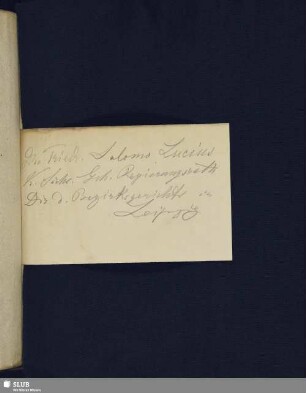 Dr. Friedr. Salomo Lucius
K. Sächs. Geh. Regierungsrath
Dir d. Bezirksgerichts in
Leipzig
SLUB